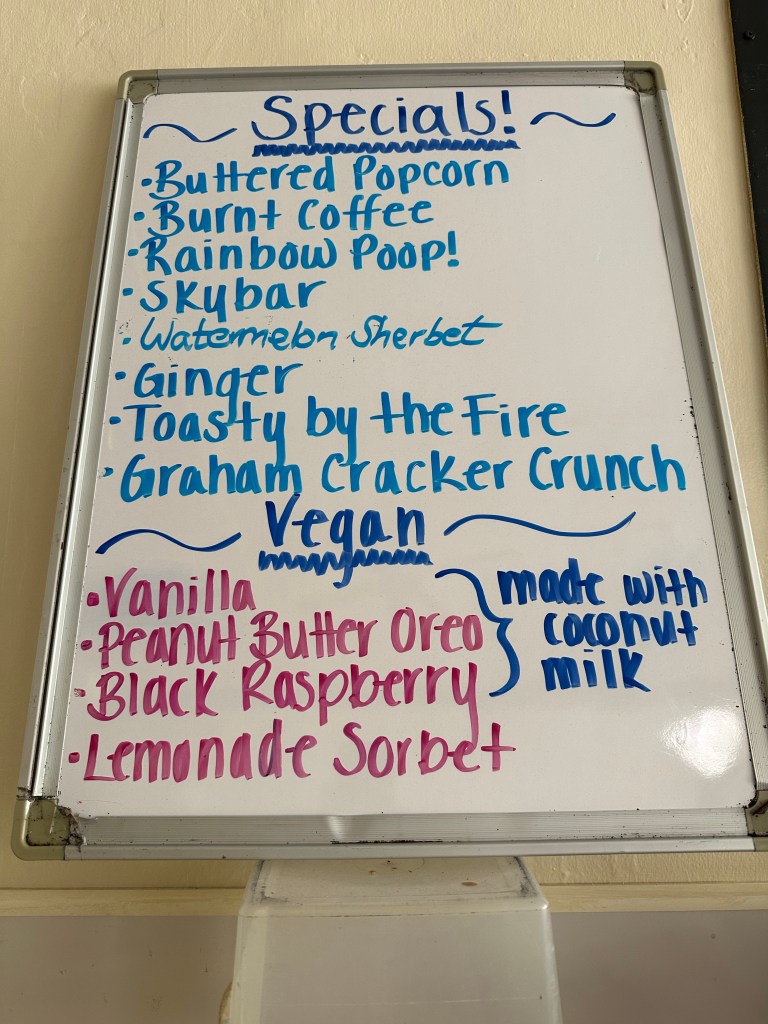 ~ Specials! ~
•Buttered Popcorn
•Burnt Coffee
•Rainbow Poop!
•Skybar
•Watermelon Sherbet
•Ginger
•Toasty by the Fire
•Graham Cracker Crunch
~ Vegan ~
•Vanilla
•Peanut Butter Oreo
•Black Raspberry
} made with
coconut
milk
•Lemonade Sorbet